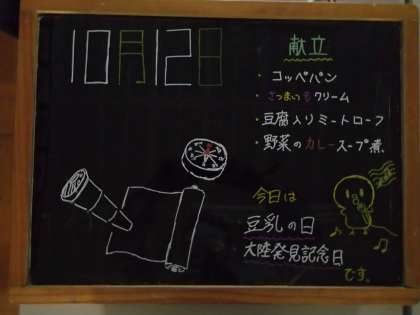 10月12日
献立
・コッペパン
・さつまいもクリーム
・豆腐入りミートローフ
・野菜のカレースープ煮
今日は
豆乳の日
大陸発見記念日
です。